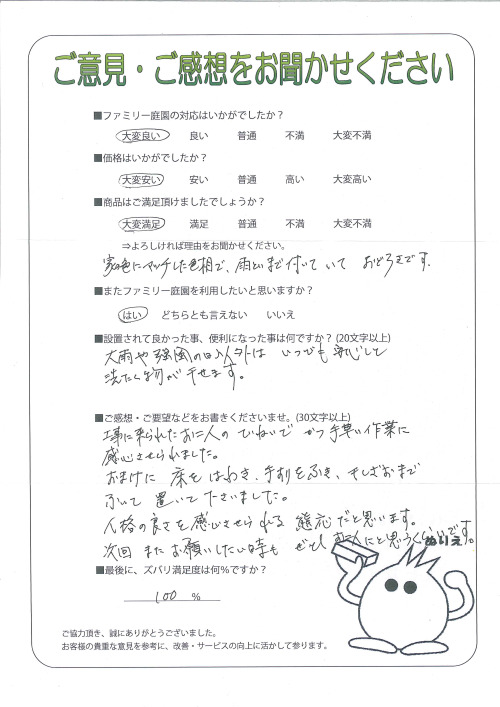 ご意見・ご感想をお聞かせください
■ファミリー庭園の対応はいかがでしたか？
大変良い 良い 普通 不満 大変不満
■価格はいかがでしたか？
大変安い 安い 普通 高い 大変高い
■商品はご満足頂けましたでしょうか？
大変満足 満足 普通 不満 大変不満
⇒よろしければ理由をお聞かせください。
家の色にマッチした色相で、雨どいまで付いていて おどろきです。
■またファミリー庭園を利用したいと思いますか？
はい どちらとも言えない いいえ
■設置されて良かった事、便利になった事は何ですか？(20文字以上)
大雨や強風の日以外は いつでも安心して
洗たく物が干せます。
■ご感想・ご要望などをお書きくださいませ。(30文字以上)
工事に来られたお二人の ていねいで かつ手早い作業に
感心させられました。
おまけに 床を はわき、手すりをふき、干しざおまで
ふいて 置いて下さいました。
人格の良さを感じさせられる 態応だと思います。
次回 また お願いしたい時も ぜひ お二人にと思うくらいです。
ぬりえ
■最後に、ズバリ満足度は何％ですか？
100 %
ご協力頂き、誠にありがとうございました。
お客様の貴重な意見を参考に、改善・サービスの向上に活かして参ります。